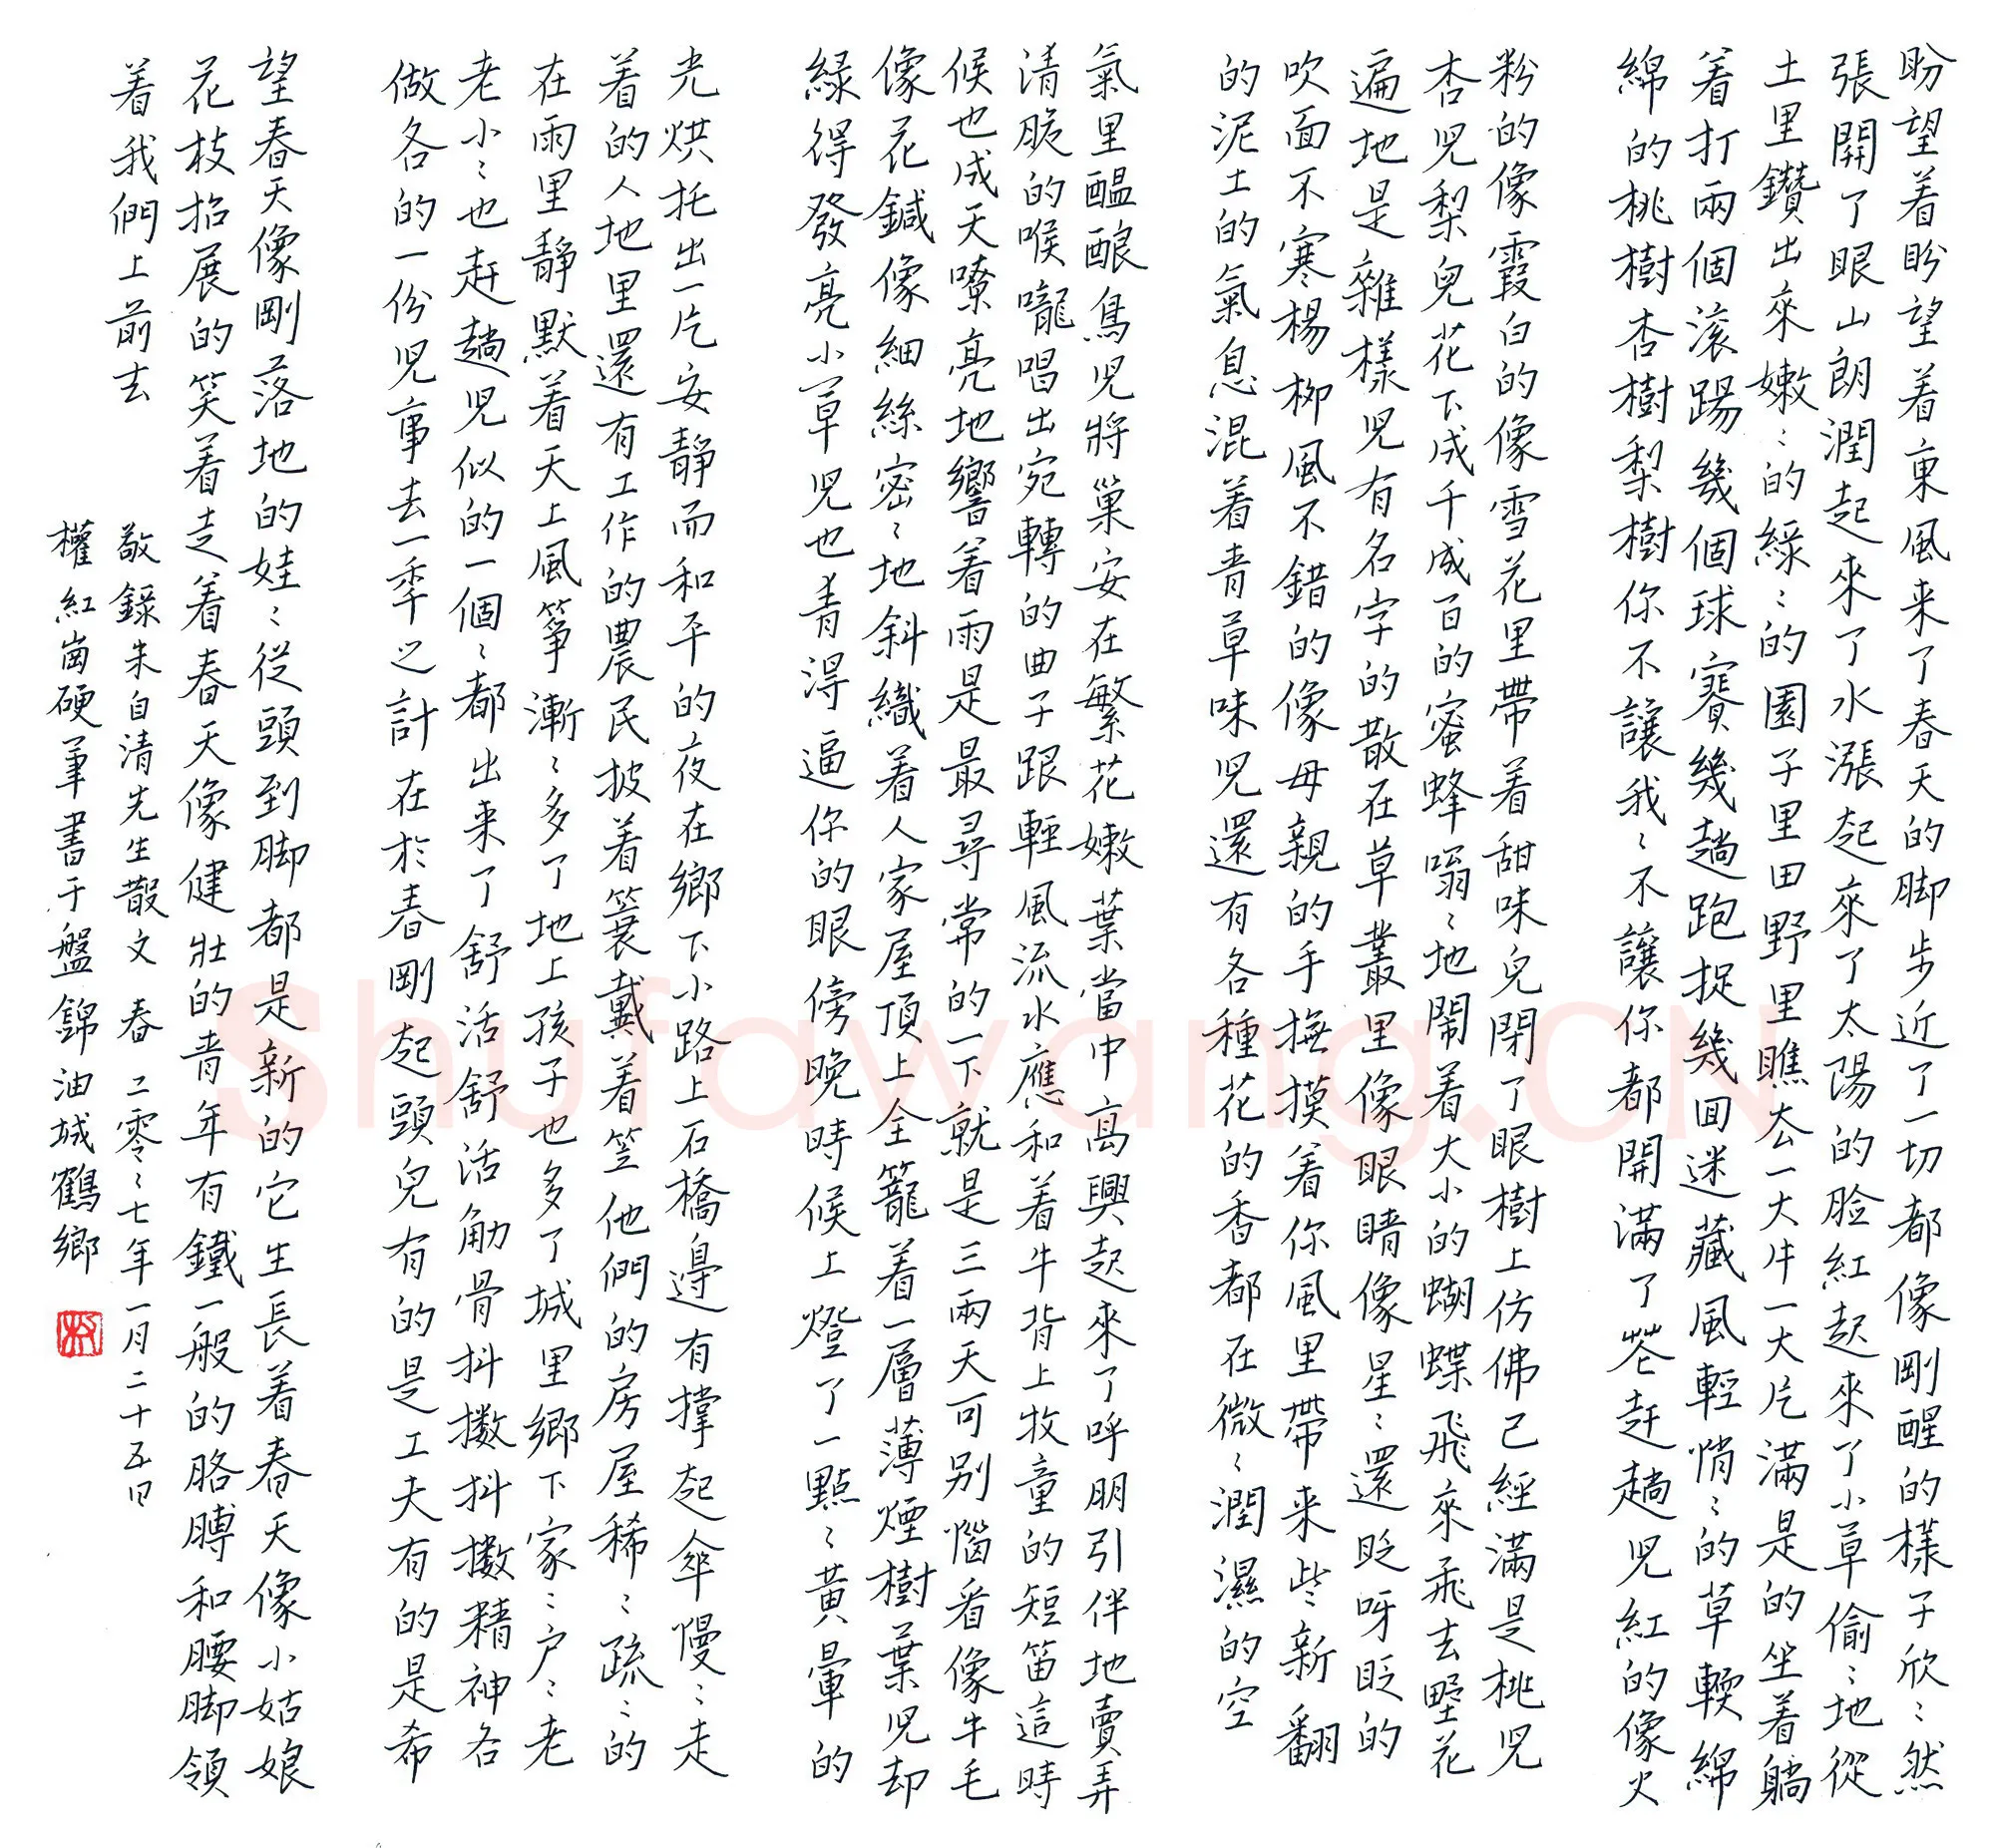 盼望着盼望着東風来了春天的脚步近了一切都像剛醒的樣子欣〻然
張開了眼山朗潤起來了水漲起來了太陽的脸紅起來了小草偷〻地從
土里鑽出來嫩〻的綠〻的園子里田野里瞧去一大片一大片滿是的坐着躺
着打兩個滚踢幾個球賽幾趟跑捉幾回迷藏風輕悄〻的草輭綿
綿的桃樹杏樹梨樹你不讓我〻不讓你都開滿了花赶趟兒紅的像火
粉的像霞白的像雪花里帶着甜味兒閉了眼樹上仿佛已經滿是桃兒
杏兒梨兒花下成千成百的蜜蜂嗡〻地鬧着大小的蝴蝶飛來飛去野花
遍地是雜樣兒有名字的散在草叢里像眼睛像星〻還眨呀眨的
吹面不寒楊柳風不錯的像母親的手撫摸着你風里帶来些新翻
的泥土的氣息混着青草味兒還有各種花的香都在微〻潤濕的空
氣里醖酿鳥兒將巢安在繁花嫩葉當中高興起來了呼朋引伴地賣弄
清脆的喉嚨唱出宛轉的曲子跟輕風流水應和着牛背上牧童的短笛這時
候也成天嘹亮地響着雨是最尋常的一下就是三兩天可别惱看像牛毛
像花鍼像細絲密〻地斜織着人家屋頂上全籠着一層薄煙樹葉兒却
緑得發亮小草兒也青得逼你的眼傍晚時候上燈了一點〻黄暈的
光烘托出一片安靜而和平的夜在鄉下小路上石橋邊有撑起傘慢〻走
着的人地里還有工作的農民披着簑戴着笠他們的房屋稀〻疏〻的
在雨里靜默着天上風筝漸〻多了地上孩子也多了城里鄉下家〻户〻老
老小〻也赶趟兒似的一個〻都出来了舒活舒活觔骨抖擻抖擻精神各
做各的一份兒事去一年之計在於春剛起頭兒有的是工夫有的是希
望春天像剛落地的娃〻從頭到脚都是新的它生長着春天像小姑娘
花枝招展的笑着走着春天像健壯的青年有鐵一般的胳膊和腰脚領
着我們上前去
敬錄朱自清先生散文 春 二零〻七年一月二十五日
權紅崗硬筆書于盤錦油城鶴鄉
Shufawang.CN